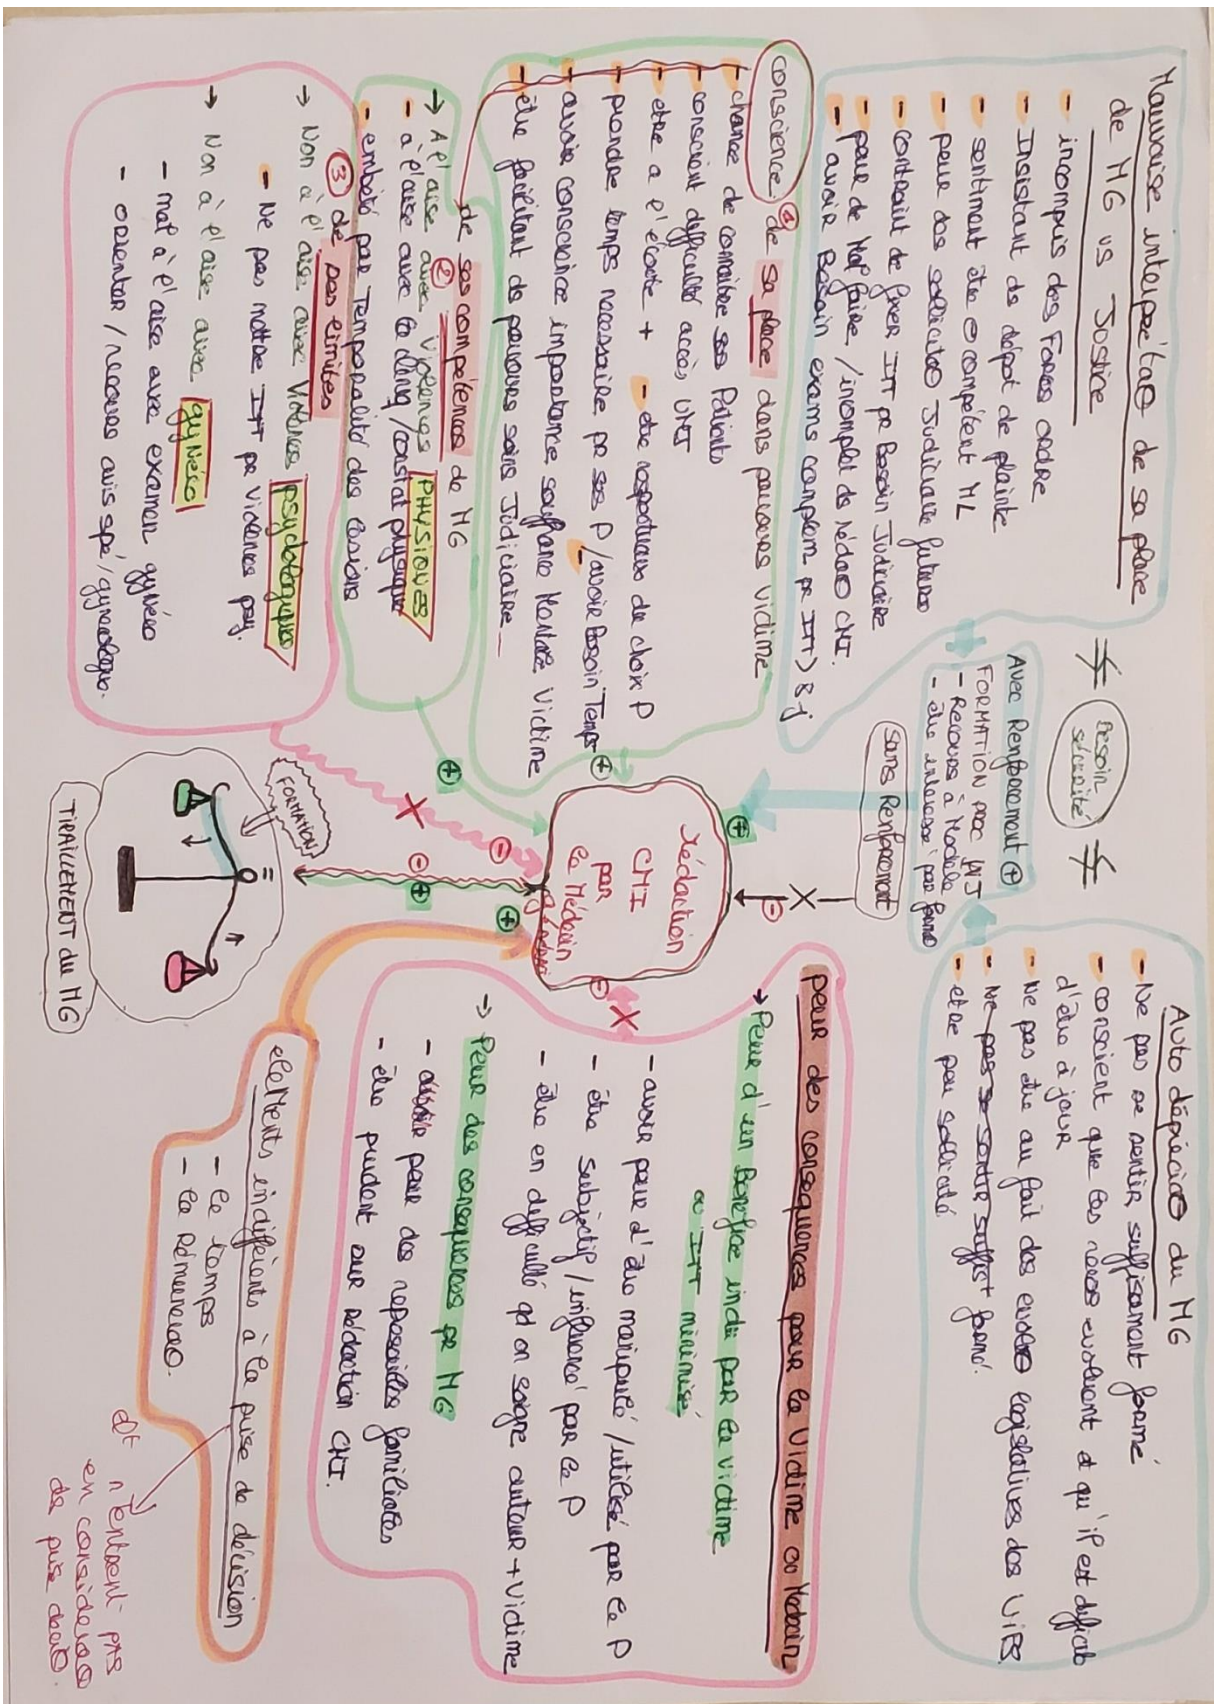 Mauvaise interpétat° de sa place
de MG vs Justice
- incompris des Forces ordre
- Insistant de dépot de plainte
- sentiment être ⊖ compétent ML
- peur des sollicitat° Judiciaire futures
- contraint de fixer ITT pr Besoin Judiciaire
- peur de Mal faire / incomplet de rédact° CMI.
- avoir Besoin exams complem pr ITT > 8 j
≠
Besoin
sécurité
≠
Avec Renforcement ⊕
FORMATION avec UMJ
- Recours à Modèle
- être intéressé par forma°
Sans Renforcement
Auto dépréciat° du MG
- Ne pas se sentir suffisamant formé
- conscient que les caos evoluent et qu'il est difficile
d'être à jour
- Ne pas être au fait des evolut° legislatives des VIFS.
- Ne pas se sentir suffist formé.
- etre peu sollicité
conscience ① de sa place dans parcours victime
- chance de connaître ses Patients
- conscient difficulté accès UMJ
- etre a l'écoute + - etre respectueux du choix P
- prendre temps necessaire pr ses P / avoir Besoin Temps
- avoir conscience importance souffrance Mentale Victime
- être facilitant de parcours soins Judiciaire
② de ses compétences de MG
→ A l'aise avec violences PHYSIQUES
- à l'aise avec le diag / constat physique
- embêté par Temporalité des lésions
③ de ses limites
→ Non à l'aise avec Violences psychologiques
- Ne pas mettre ITT pr violences psy.
→ Non à l'aise avec gynéco
- mal à l'aise avec examen gynéco
- orienter / recours avis spé / gynecologue.
⊕
⊕
⊕
⊖
Rédaction
CMI
par
le Médecin
généraliste
⊖
⊖
⊕
⊖
⊕
FORMATION
=
TIRAILLEMENT du MG
peur des consequences pour la Victime ou Médecin
→ Peur d'un Bénéfice indu par la victime
ou ITT minimisé
- avoir peur d'être manipulé / utilisé par le P
- être subjectif / influencé par le P
- être en difficulté qd on soigne auteur + victime
→ Peur des consequences pr MG
- avoir peur des represailles familiales
- être prudent sur rédaction CMI.
elements indifférents à la prise de décision
- le temps
- la Rémunérat°.
n'entrent PAS
en considérat°
de prise décis°